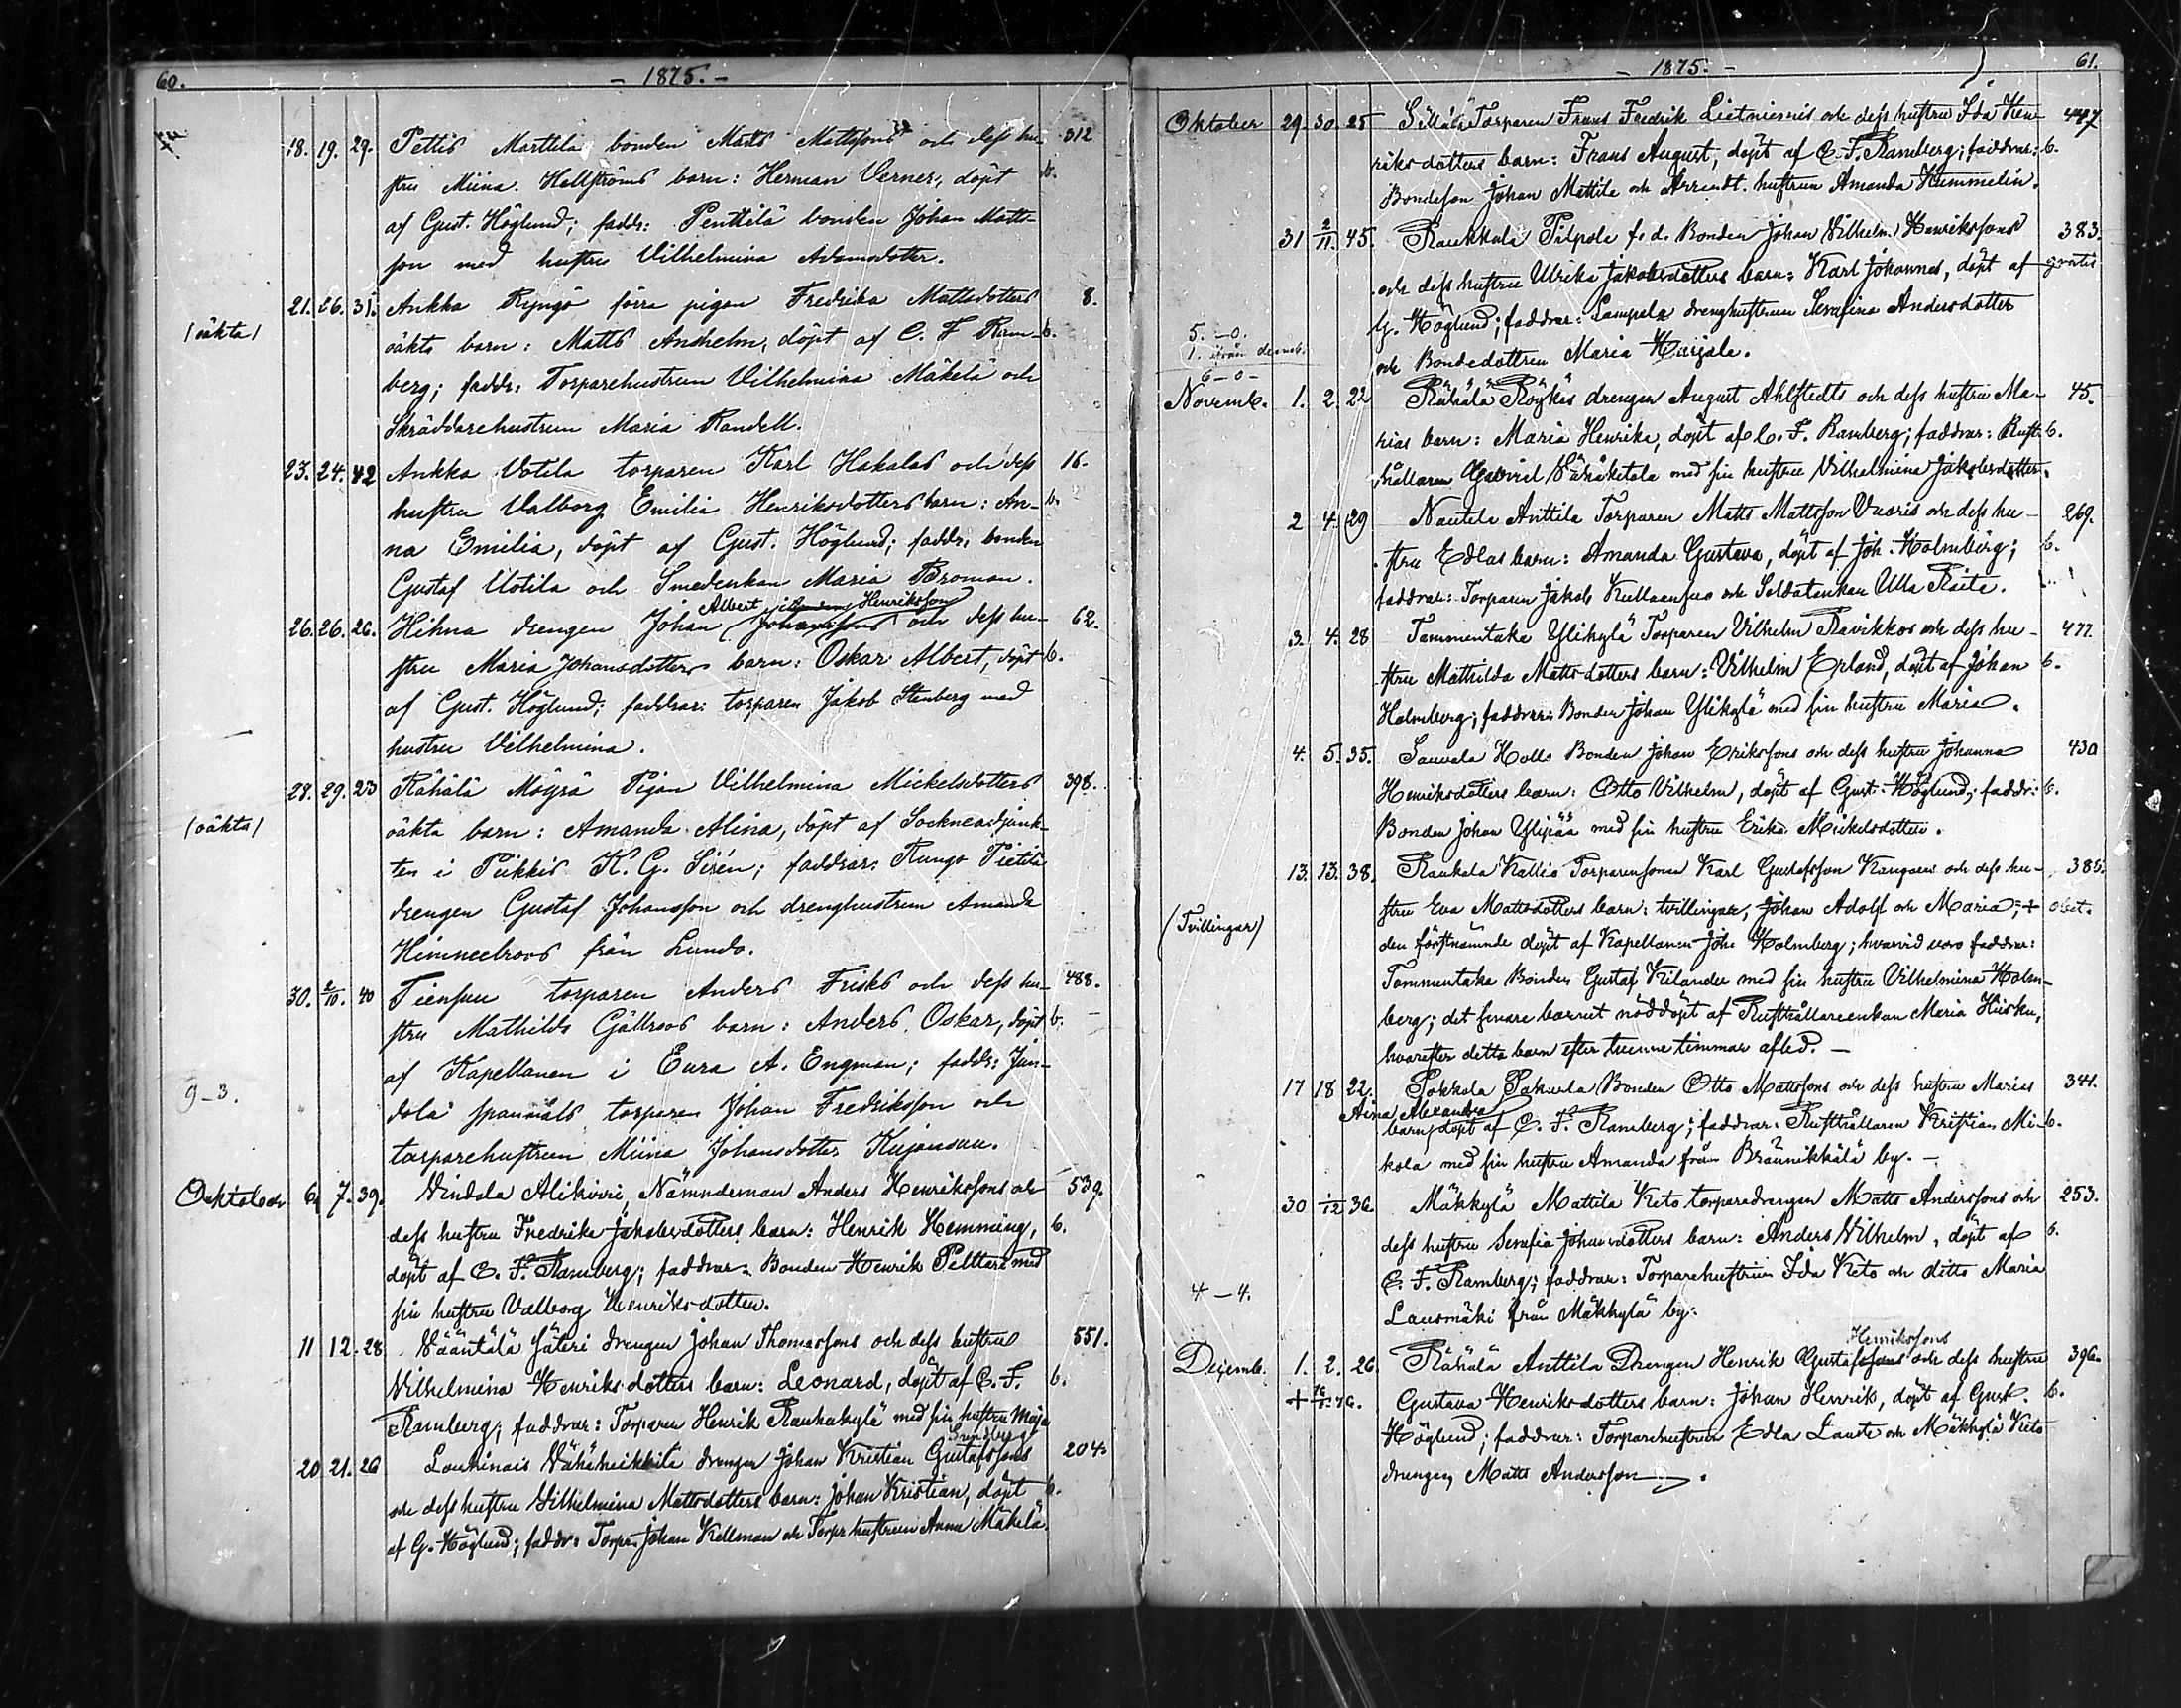 60.
- 1875. -
18. 19. 29. Pettis Marttila bonden Matts Mattssons och dess hu- 312
stru Miina Hellströms barn: Herman Verner, döpt b.
af Gust. Höglund; faddr: Penttilä bonden Johan Matts-
son med hustru Vilhelmina Adamsdotter.
21. 26. 31. Ankka Ryngö förra pigan Fredrika Mattsdotters 8.
(oäkta) oäkta barn: Matts Anshelm, döpt af C. F Ram- b.
berg; faddr: Torparehustrun Vilhelmina Mäkelä och
Skräddarehustrun Maria Randell.
23. 24. 42 Ankka Votila torparen Karl Hakalas och dess 16.
hustru Valborg Emilia Henriksdotters barn: An- b.
na Emilia, döpt af Gust. Höglund; faddr: bonden
Gustaf Uotila och Smedenkan Maria Broman.
Albert Henriksson
26. 26. 26. Hihna drengen Johan Johanssons och dess hu- 62.
stru Maria Johansdotters barn: Oskar Albert, döpt b.
af Gust. Höglund; faddrar: torparen Jakob Stenberg med
hustru Vilhelmina.
28. 29. 23 Rähälä Möyrä Pigan Vilhelmina Mickelsdotters 398.
(oäkta) oäkta barn: Amanda Alina, döpt af Sockneadjunk-
ten i Piikkis K. G. Sirén; faddrar: Rungo Pietilä
drengen Gustaf Johansson och drenghustrun Amanda
Himneelroos från Lundo.
30. 2/10. 40 Tiensuu torparen Anders Frisks och dess hu- 488.
stru Mathilda Gällroos barn: Anders Oskar, döpt b.
af Kapellanen i Eura A. Engman; faddr: Jun-
9-3. dola spannmåls torparen Johan Fredriksson och
torparehustrun Miina Johansdotter Kujansuu.
Oktober 6. 7. 39. Vindala Alikirri Nämndeman Anders Henrikssons och 539.
dess hustru Fredrika Jakobsdotters barn: Henrik Hemming, b.
döpt af C. F. Ramberg; faddrar: Bonden Henrik Pelttari med
sin hustru Valborg Henriksdotter.
11 12. 28 Vääntälä Säteri drengen Johan Thomassons och dess hustru 551.
Vilhelmina Henriksdotters barn: Leonard, döpt af C. F. b.
Ramberg; faddrar: Torparen Henrik Rauhakylä med sin hustru Maja
Sundberg
20 21. 26 Loukinais Vähäheikkilä drengen Johan Kristian Gustafssons 204.
och dess hustru Vilhelmina Mattsdotters barn: Johan Kristian, döpt b.
af G. Höglund; faddr: Torp. Johan Kellman och Torpr hustrun Anna Mäkelä.
- 1875. -
61.
Oktober 29. 30. 25 Torparen Frans Fredrik Lietniemis och dess hustru Ida Hen- 447
riksdotters barn: Frans August, döpt af C. F. Ramberg; faddrar: b.
Bondeson Johan Mattila och Arrendt. hustrun Amanda Hummelin.
31 2/11. 45. Raukkala Pilpola f. d. Bonden Johan Vilhelm Henrikssons 383.
och dess hustru Ulrika Jakobsdotters barn: Karl Johannes, döpt af gratis
G. Höglund; faddrar: Lampola drenghustrun Serafina Andersdotter
och Bondedottren Maria Harjala.
5. -0.
1. ifrån decemb.
6-0-
Novemb. 1. 2. 22 Rähälä Röykäs drengen August Ahlstedts och dess hustru Ma- 45.
rias barn: Maria Henrika, döpt af C. F. Ramberg; faddrar: Rust- b.
hållaren Gabriel Vähäketola med sin hustru Vilhelmina Jakobsdotter.
2 4. 29 Nautela Anttila Torparen Matts Mattsson Vuoris och dess hu- 269.
stru Edlas barn: Amanda Gustava, döpt af Joh. Holmberg; b.
faddrar: Torparen Jakob Kullaansuu och Soldatenkan Ulla Raita.
3. 4. 28 Tammentaka Ylikylä Torparen Vilhelm Ravikkos och dess hu- 477.
stru Mathilda Mattsdotters barn: Vilhelm Erland, döpt af Johan b.
Holmberg; faddrar: Bonden Johan Ylikylä med sin hustru Maria.
4. 5. 35. Sauvala Holls Bonden Johan Erikssons och dess hustru Johanna 430
Henriksdotters barn: Otto Vilhelm, döpt af Gust. Höglund; faddr: b.
Bonden Johan Ylipää med sin hustru Erika Mickelsdotter.
13. 13. 38. Raukala Kallio Torparesonen Karl Gustafsson Kangas och dess hu- 385.
(Tvillingar) stru Eva Mattsdotters barn: tvillingar, Johan Adolf och Maria; + obet.
den förstnämnde döpt af Kapellanen Joh: Holmberg; hvarvid voro faddrar:
Tammentaka Bonden Gustaf Kilander med sin hustru Vilhelmina Holm-
berg; det senare barnet nöddöpt af Rusthållareenkan Maria Hiisku,
hvarefter detta barn efter tvenne timmar afled. -
17 18 22. Pokkola Pakurla Bonden Otto Mattssons och dess hustru Marias 341.
Aina Alexandra
barn, döpt af C. F. Ramberg; faddrar: Rusthållaren Kristian Mi- b.
kola med sin hustru Amanda från Brännikkälä by. -
30 1/12 36. Mäkkylä Mattila Keto torparedrengen Matts Anderssons och 253.
dess hustru Serafia Johansdotters barn: Anders Vilhelm, döpt af b.
C. F. Ramberg; faddrar: Torparehustrun Ida Keto och ditto Maria
4-4. Lausmäki från Mäkkylä by.
Henrikssons
Decemb. 1. 2. 26. Rähälä Anttila Drengen Henrik Gustafssons och dess hustru 396.
Gustava Henriksdotters barn: Johan Henrik, döpt af Gust. b.
Höglund; faddrar: Torparehustrun Edla Lauste och Mäkkylä Keto
drengen Matts Andersson.